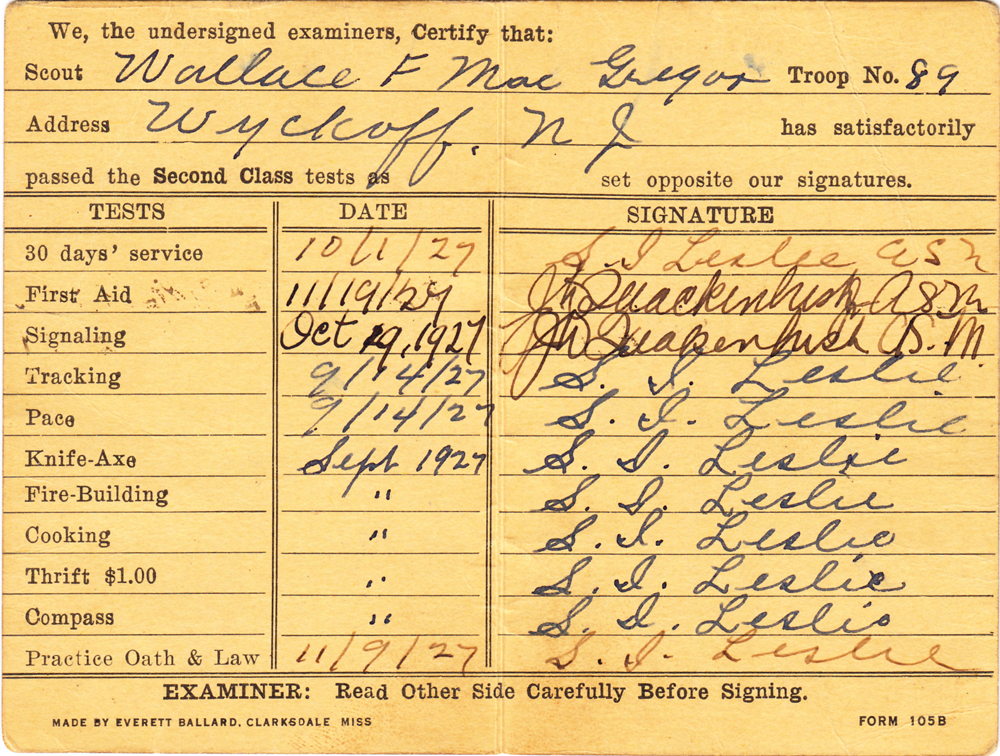 We, the undersigned examiners, Certify that:
Scout Wallace F Mac Gregor Troop No. 89
Address Wyckoff, N J has satisfactorily
passed the Second Class tests as set opposite our signatures.
TESTS DATE SIGNATURE
30 days' service 10/1/27 S. I Leslie ASM
First Aid 11/19/27 JW Quackenbush ASM
Signaling Oct 19, 1927 JW Quackenbush A.S.M
Tracking 9/14/27 S. I. Leslie
Pace 9/14/27 S. I. Leslie
Knife-Axe Sept 1927 S. I. Leslie
Fire-Building " S. I. Leslie
Cooking " S. I. Leslie
Thrift $1.00 " S. I. Leslie
Compass " S. I. Leslie
Practice Oath & Law 11/9/27 S. I. Leslie
EXAMINER: Read Other Side Carefully Before Signing.
MADE BY EVERETT BALLARD, CLARKSDALE MISS FORM 105B